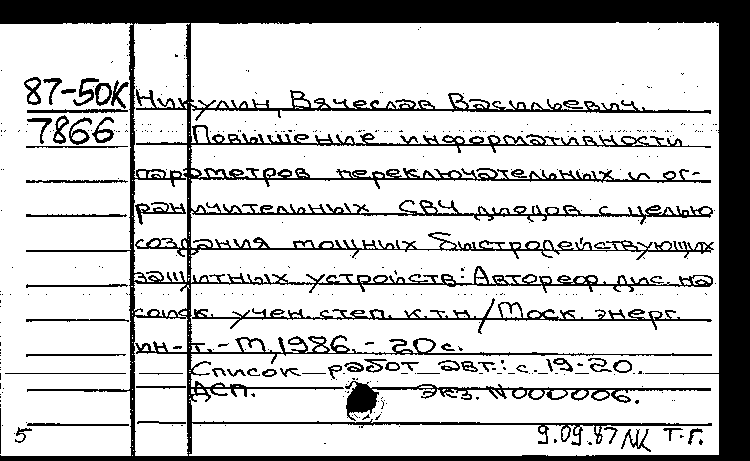 87-50К
7866
Никулин, Вячеслав Васильевич.
Повышение информативности
параметров переключательных и ог-
раничительных СВЧ диодов с целью
создания мощных быстродействующих
защитных устройств: Автореф. дис. на
соиск. учен. степ. к.т.н. / Моск. энерг.
ин-т. - М., 1986. - 20 с.
Список работ авт.: с. 19-20.
ДСП. Экз. N000006.
5 9.09.87 Т.Г.